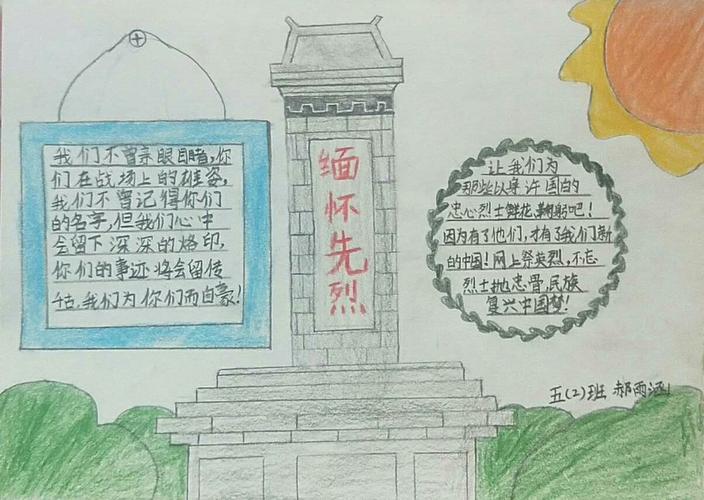 我们不曾亲眼目睹,你
们在战场上的雄姿,
我们不曾记得你们
的名字,但我们心中
会留下深深的烙印,
你们的事迹将会留传
千古.我们为你们而自豪!
缅怀先烈
让我们为
那些以身许国的
忠心烈士鲜花,鞠躬吧!
因为有了他们,才有了我们新
的中国!网上祭英烈,不忘
烈士地忠骨,民族
复兴中国梦!
五(2)班 郝雨涵